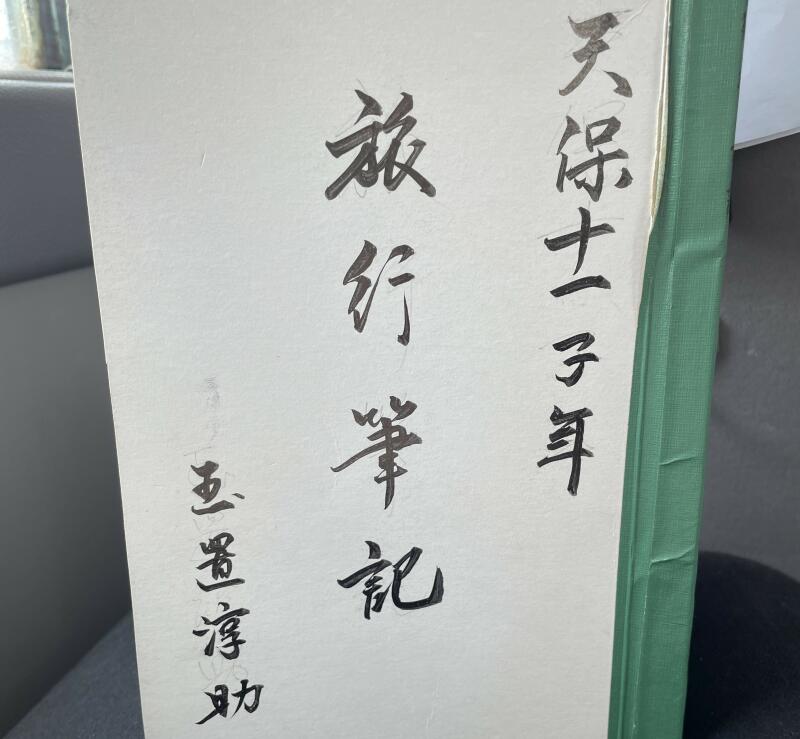 天保十一子年
旅行筆記
玉置淳助